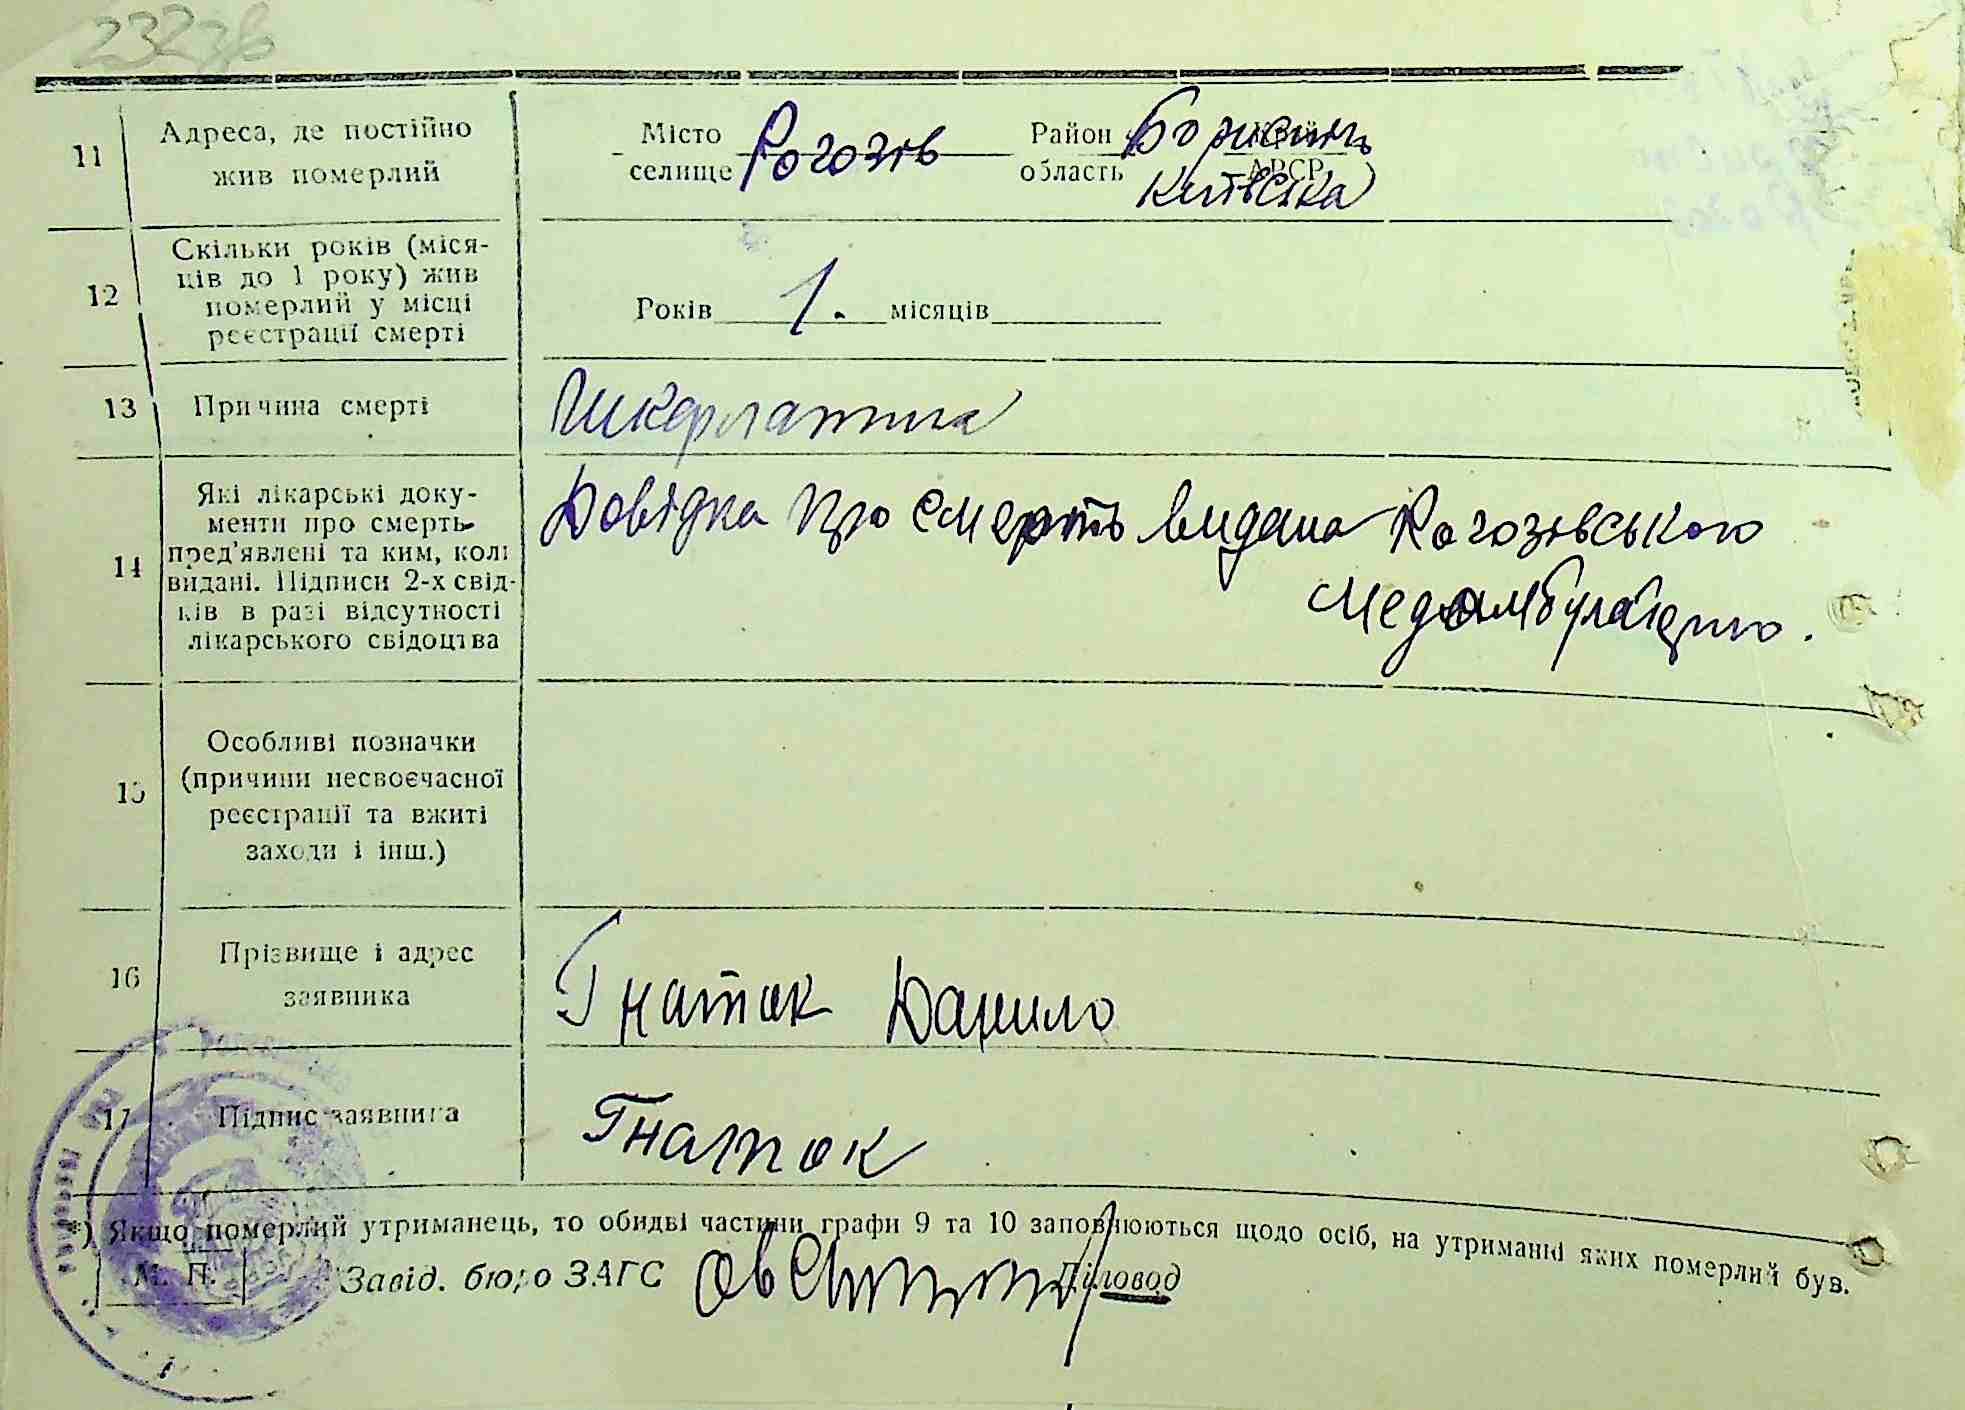 232зв
11
Адреса, де постійно
жив померлий
Місто
селище
Рогозів
Район
область
Бориспіль
Київська
АРСР
12
Скільки років (міся-
ців до 1 року) жив
померлий у місці
реєстрації смерті
Років 1. місяців
13
Причина смерті
Шкарлатина
14
Які лікарські доку-
менти про смерть
пред'явлені та ким, колі
видані. Підписи 2-х свід-
ків в разі відсутності
лікарського свідоцтва
Довідка про смерть видана Рогозівського
медамбулаторією.
15
Особливі позначки
(причини несвоєчасної
реєстрації та вжиті
заходи і інш.)
16
Прізвище і адрес
заявника
Гнаток Данило
17
Підпис заявника
Гнаток
*) Якщо померлий утриманець, то обидві частини графи 9 та 10 заповнюються щодо осіб, на утриманні яких померлий був.
М. П.
Завід. бюро ЗАГС
Діловод